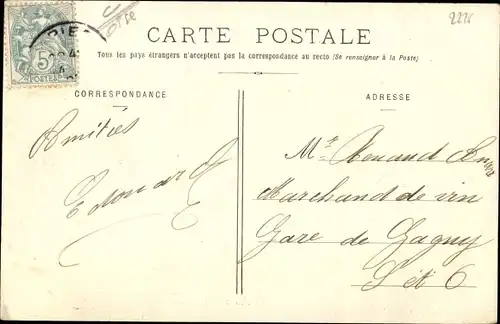 OISE
2226
CARTE POSTALE
Tous les pays étrangers n'acceptent pas la correspondance au recto (Se renseigner à la Poste)
CORRESPONDANCE
ADRESSE
5
POSTES
Amitiés
Edouard
Mr Renaud
Marchand de vin
Gare de Gagny
S et O